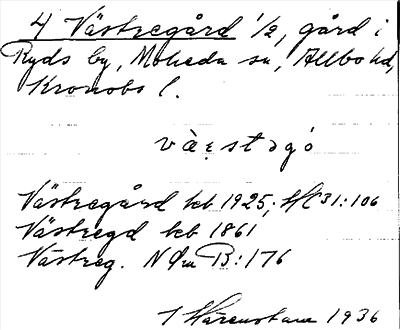 4 Västregård 1/2, gård i
Ryds by, Moheda sn, Allbo hd,
Kronobs l.
væ̀stəgó
Västregård kb 1925; HC 31:106
Västregd kb 1861
Västreg. N Øm B:176
J Härenstam 1936